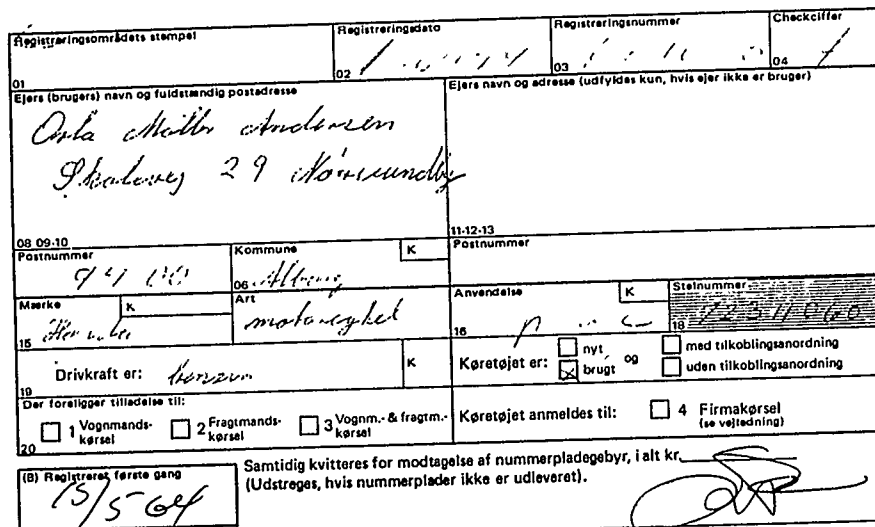 Registreringsområdets stempel
01
Registreringsdato
02
Registreringsnummer
03
Checkciffer
04
Ejers (brugers) navn og fuldstændig postadresse
Møller Andersen
29 Nørresundby
08 09-10
Ejers navn og adresse (udfyldes kun, hvis ejer ikke er bruger)
11-12-13
Postnummer
9400
Kommune
K
06 Ålborg
Postnummer
Mærke
K
15
Art
motorcykel
Anvendelse
K
16
Stelnummer
18
Drivkraft er: benzin
K
19
Køretøjet er:
nyt
og
brugt
med tilkoblingsanordning
uden tilkoblingsanordning
Der foreligger tilladelse til:
1 Vognmands-
kørsel
2 Fragtmands-
kørsel
3 Vognm.- & fragtm.-
kørsel
20
Køretøjet anmeldes til:
4 Firmakørsel
(se vejledning)
(B) Registreret første gang
15/5 64
Samtidig kvitteres for modtagelse af nummerpladegebyr, i alt kr.
(Udstreges, hvis nummerplader ikke er udleveret).